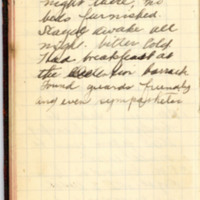 night there, no
beds furnished.
Stayed awake all
night. bitter cold
Had breakfast at
the our barrack
Found guards friendly
and even sympathetic